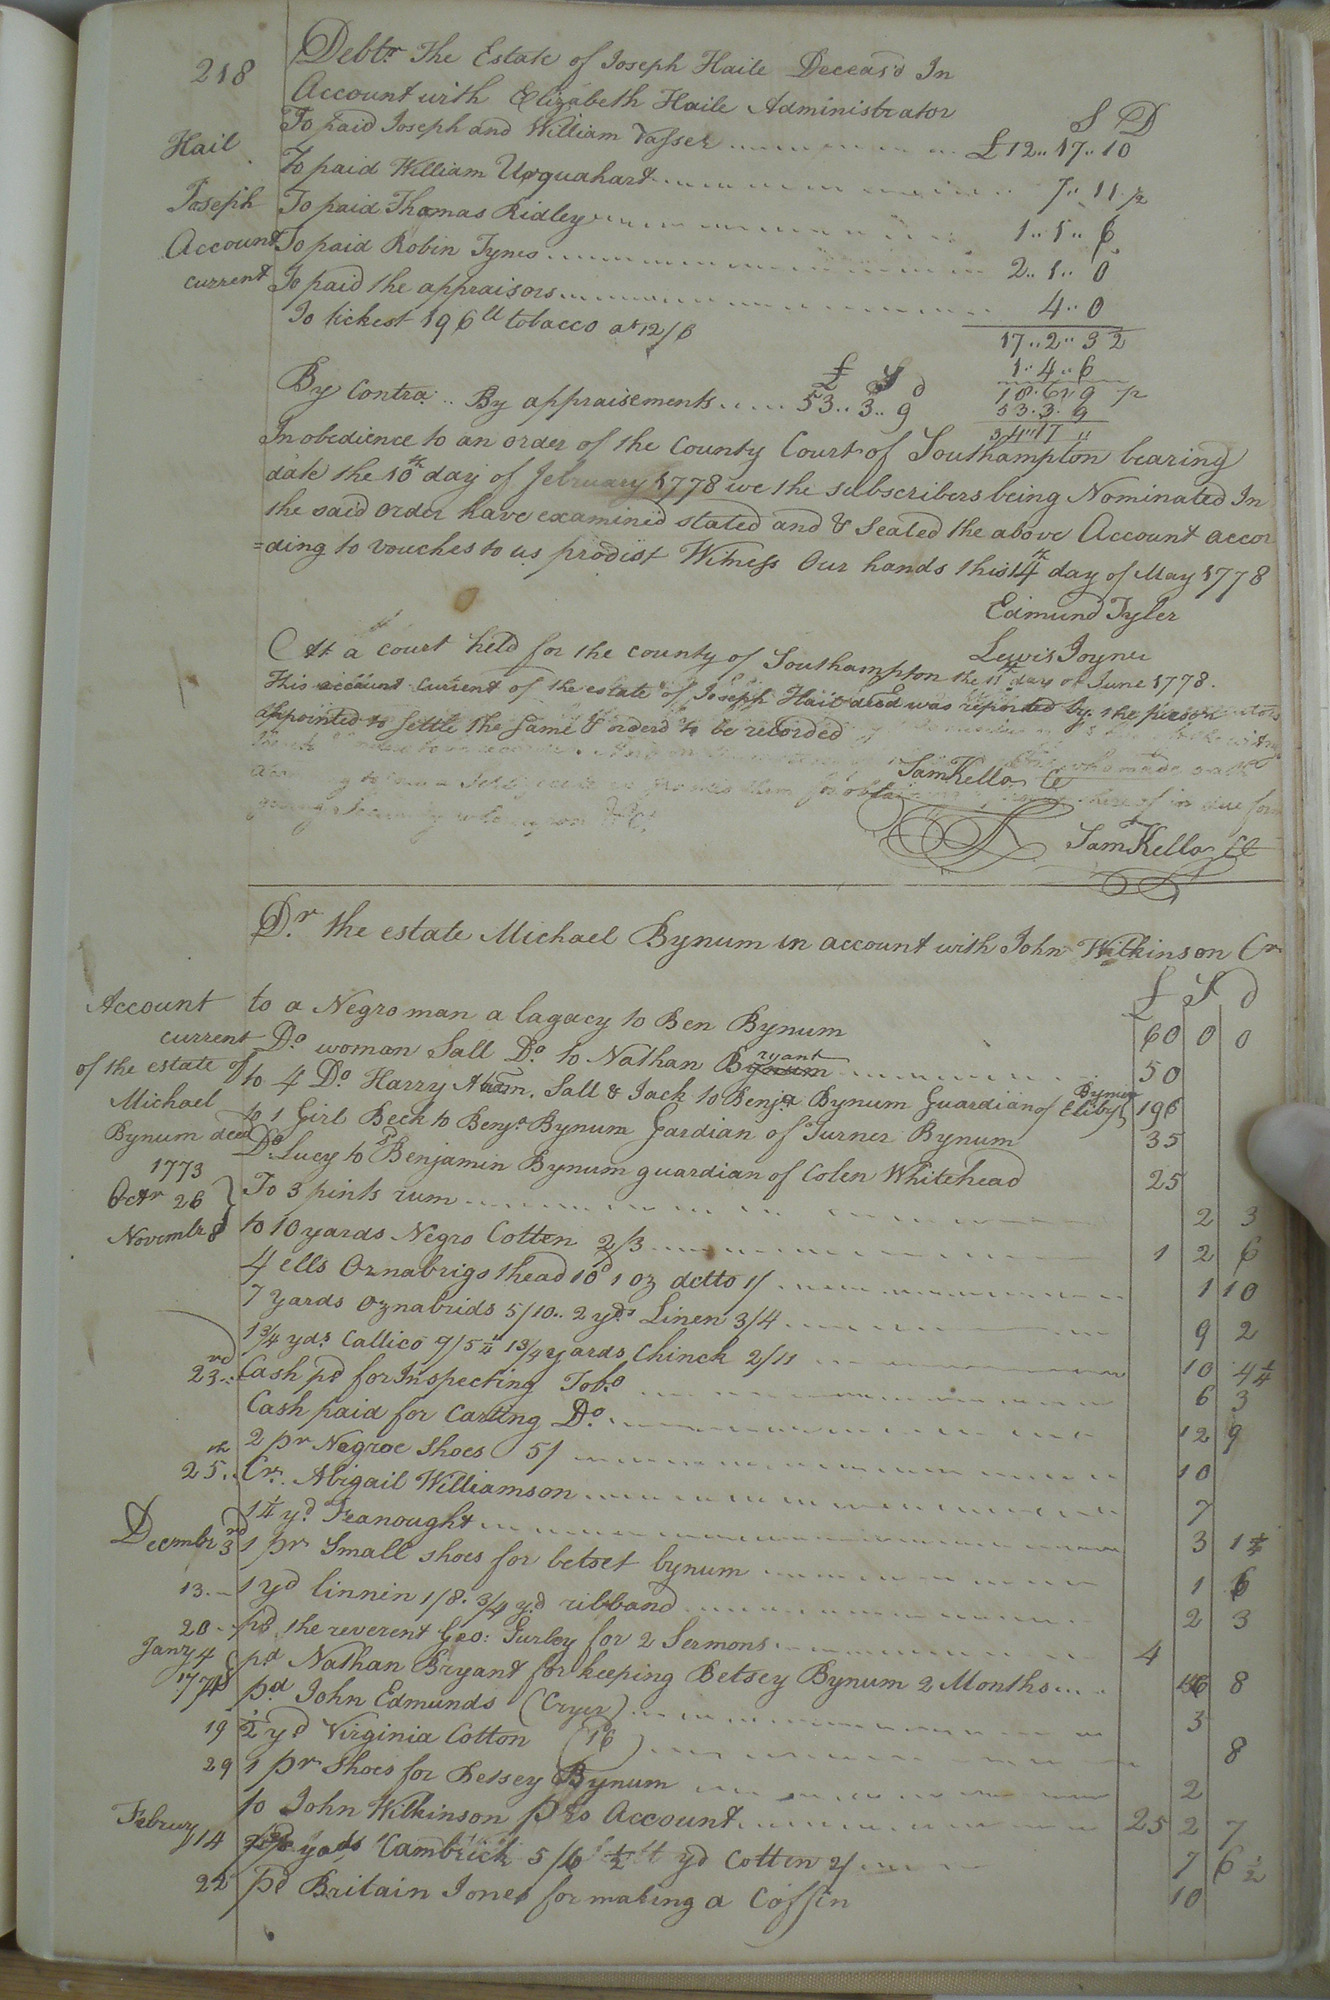 218
Debtr The Estate of Joseph Haile Deceas'd In
Account with Elizabeth Haile Administrator
S D
Hail
Joseph
Account
current
To paid Joseph and William Vasser £12..17..10
To paid William Urquahart 7..11 ½
To paid Thomas Ridley 1..1..6
To paid Robin Tynes 2..1..0
To paid the appraisors 4..0
17..2..3 ½
To tickest 196 lt tobacco at 12/6 1..4..6
£ S d
18..6..9 ½
By Contra .. By appraisements 53..3..9 53..3..9
34..17 "
In obedience to an order of the County Court of Southampton bearing
date the 10th day of february 1778 we the subscribers being Nominated In
the said order have examined stated and & Sealed the above Account accor
=ding to vouches to us prodist Witness Our hands this 14th day of May 1778
Edmund Tyler
Lewis Joyner
At a court held for the county of Southampton the 11th day of June 1778.
This account current of the estate of Joseph Hail deced was reported by the person
appointed to settle the same & orderd to be recorded
Sam Kello Cl
Sam Kello Cl
Dr. the estate Michael Bynum in account with John Wilkinson Cr
£ S d
Account
current
of the estate of
Michael
Bynum deced
to a Negro man a lagacy to Ben Bynum 60 0 0
Do woman Sall Do to Nathan Bryant 50
to 4 Do Harry Adam, Sall & Jack to Benja Bynum Guardian of Elizby Bynum 196
to 1 Girl Beck to Benja Bynum Gardian of Turner Bynum 35
Do Lucy to Benjamin Bynum guardian of Colen Whitehead 25
1773
Octr 26 To 3 pints rum 2 3
Novembr 8 to 10 yards Negro Cotten 2/3 1 2 6
4 ells Oznabrigs thead 10d 1 oz detto 1/ 1 10
7 yards Oznabrids 5/10.. 2 yds Linen 3/4 9 2
1 3/4 yds. Callico 7/5 ¼ 1 3/4 yards Chinck 2/11 10 4 ¼
23rd .. Cash pd for Inspecting Tobo 6 3
Cash paid for Carting Do 12 9
2 pr Negroe Shoes 5/ 10
25th .. Cr. Abigail Williamson 7
1 ¼ yd Feanought 3 1 ½
Decmbr 3rd 1 pr Small shoes for betset bynum 1 6
13.– 1 yd linnin 1/8. 3/4 yd ribband 2 3
20 – pd the reverent Geo: Gurley for 2 Sermons 4
Janry 4
1774 pd Nathan Bryant for keeping Betsey Bynum 2 Months 16 8
pd John Edmunds (Cryer) 3
19 ½ yd Virginia Cotton (16) 8
29 1 pr Shoes for Betsey Bynum 2
to John Wilkinson pro Account 25 2 7
Februy 14 yads Cambrick 5/6 ½ yd Cotten 2/ 7 6 ½
22 pd Britain Jones for making a Coffin 10